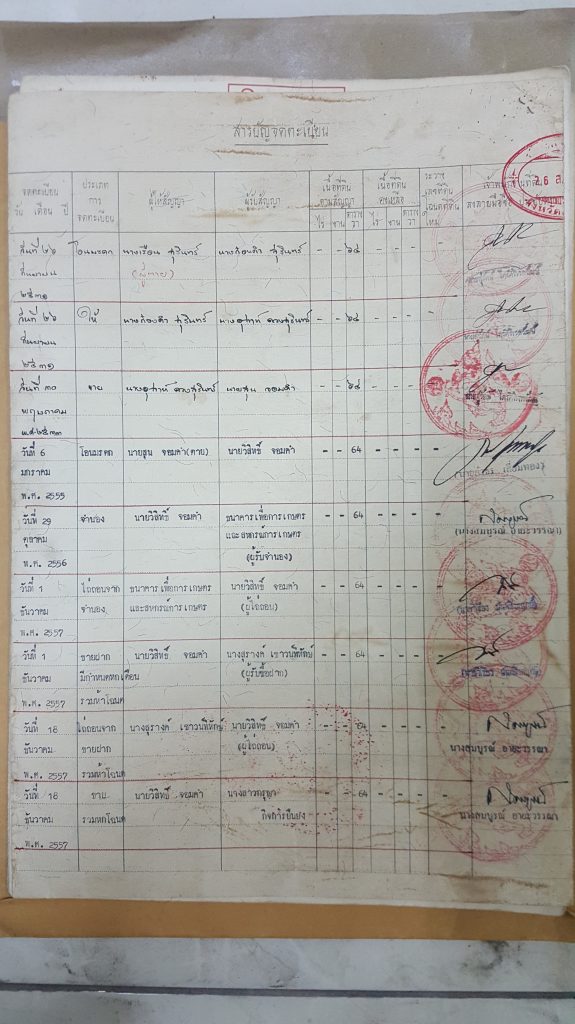 สารบัญจดทะเบียน
จดทะเบียน
วัน เดือน ปี
ประเภท
การ
จดทะเบียน
ผู้ให้สัญญา
ผู้รับสัญญา
เนื้อที่ดิน
ตามสัญญา
ไร่ งาน ตารางวา
เนื้อที่ดิน
คงเหลือ
ไร่ งาน ตารางวา
ระวาง
เลขที่ดิน
โฉนดที่ดิน
ใหม่
เจ้าพนักงานที่ดิน
ลงลายมือชื่อ
26 ส.
วันที่ ๒๖ โอนมรดก นางเรือน สุรินทร์ นางก้องคำ สุรินทร์ - - ๖๔ - - - -
กันยายน (ผู้ตาย)
๒๕๓๑
วันที่ ๒๖ ให้ นางก้องคำ สุรินทร์ - - ๖๔ - - - -
กันยายน
๒๕๓๑
วันที่ ๓๐ ขาย นายสุน จอมคำ - - ๖๔ - - - -
พฤษภาคม
พ.ศ. ๒๕๓๓
วันที่ 6 โอนมรดก นายสุน จอมคำ(ตาย) นายวิสิทธิ์ จอมคำ - - 64 - - - -
มกราคม
พ.ศ. 2555
วันที่ 29 จำนอง นายวิสิทธิ์ จอมคำ ธนาคารเพื่อการเกษตร - - 64 - - - -
ตุลาคม และสหกรณ์การเกษตร (นางสมบูรณ์ อายะวรรณา)
พ.ศ. 2556 (ผู้รับจำนอง)
วันที่ 1 ไถ่ถอนจาก ธนาคารเพื่อการเกษตร นายวิสิทธิ์ จอมคำ - - 64 - - - -
ธันวาคม จำนอง และสหกรณ์การเกษตร (ผู้ไถ่ถอน)
พ.ศ. 2557
วันที่ 1 ขายฝาก นายวิสิทธิ์ จอมคำ นางสุรางค์ เชาวนพิทักษ์ - - 64 - - - -
ธันวาคม มีกำหนดหกเดือน (ผู้รับซื้อฝาก)
พ.ศ. 2557 รวมห้าโฉนด
วันที่ 18 ไถ่ถอนจาก นางสุรางค์ เชาวนพิทักษ์ นายวิสิทธิ์ จอมคำ - - 64 - - - -
ธันวาคม ขายฝาก (ผู้ไถ่ถอน) นางสมบูรณ์ อายะวรรณา
พ.ศ. 2557 รวมห้าโฉนด
วันที่ 18 ขาย นายวิสิทธิ์ จอมคำ - - 64 - - - -
ธันวาคม รวมหกโฉนด กิจการยืนยง นางสมบูรณ์ อายะวรรณา
พ.ศ. 2557